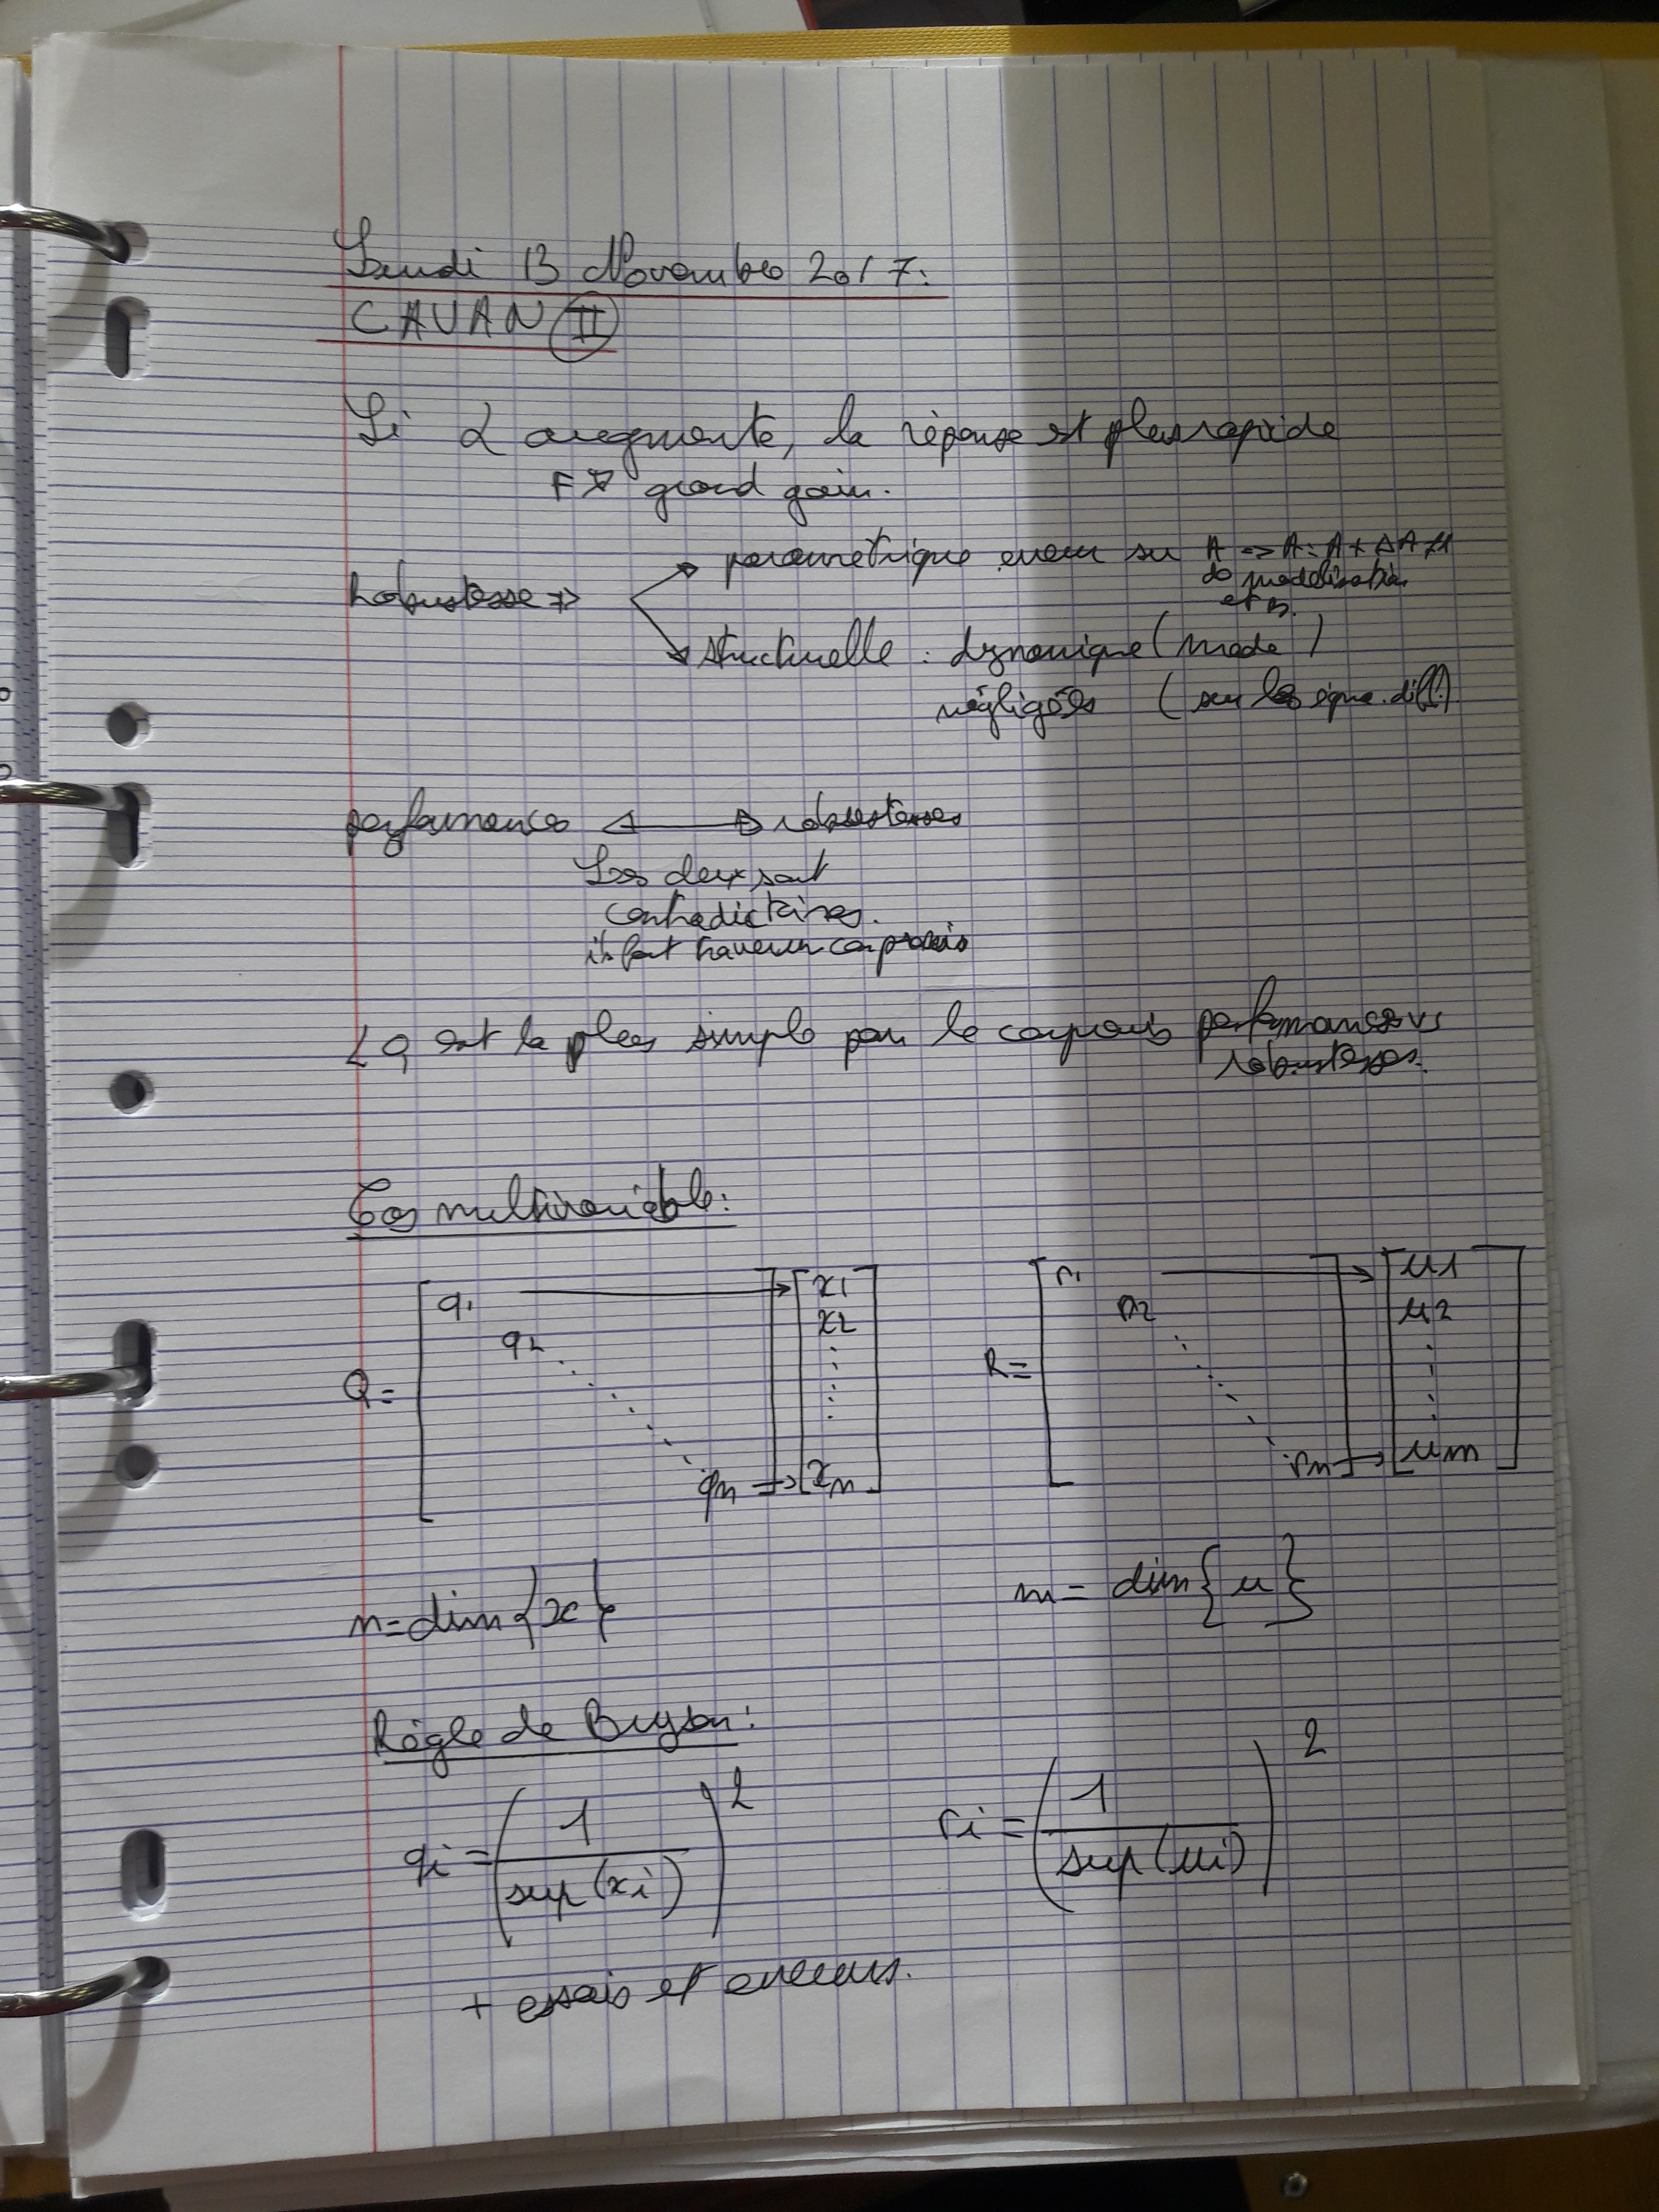 Lundi 13 Novembre 2017:
CAVAN II
Si α augmente, la réponse est plus rapide
F grand gain.
Robustesse => paramétrique erreur su A => A: A + ΔA
de modélisation
et B.
structurelle : dynamique (mode)
négligées (sur les équa. diff)
performances <-> robustesses
Les deux sont
contradictoires.
il faut trouver un compromis
LQ est le plus simple pour le compromis performances vs
robustesses.
Cas multivariable:
Q = [q1 q2 ... qn] [x1 x2 ... xn]
R = [r1 r2 ... rm] [u1 u2 ... um]
n = dim{x}
m = dim{u}
Règle de Bryson:
qi = (1 / sup(xi))^2
ri = (1 / sup(ui))^2
+ essais et erreurs.